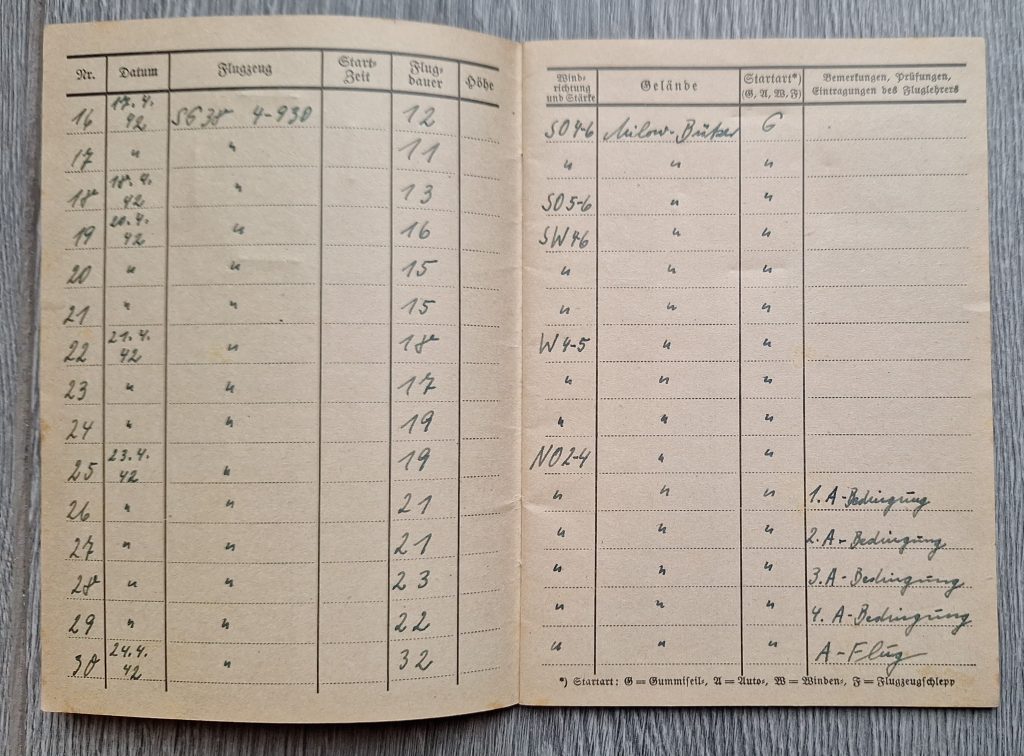 Nr. Datum Flugzeug Start-Zeit Flug-dauer Höhe Wind-richtung und Stärke Gelände Startart*) (G, A, W, F) Bemerkungen, Prüfungen, Eintragungen des Fluglehrers
16 17.4.42 SG38 4-930 12 SO 4-6 Milow-Bützer G
17 " " 11 " " "
18 18.4.42 " 13 SO 5-6 " "
19 20.4.42 " 16 SW 46 " "
20 " " 15 " " "
21 " " 15 " " "
22 21.4.42 " 18 W 4-5 " "
23 " " 17 " " "
24 " " 19 " " "
25 23.4.42 " 19 NO 2-4 " "
26 " " 21 " " " 1. A-Bedingung
27 " " 21 " " " 2. A-Bedingung
28 " " 23 " " " 3. A-Bedingung
29 " " 22 " " " 4. A-Bedingung
30 24.4.42 " 32 " " " A-Flug
*) Startart: G = Gummiseil-, A = Auto-, W = Winden-, F = Flugzeugschlepp